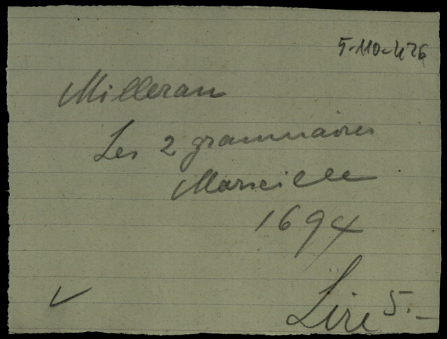 5-110-426
Milleran
Les 2 grammaires
Marseille
1694
Lire 5.-